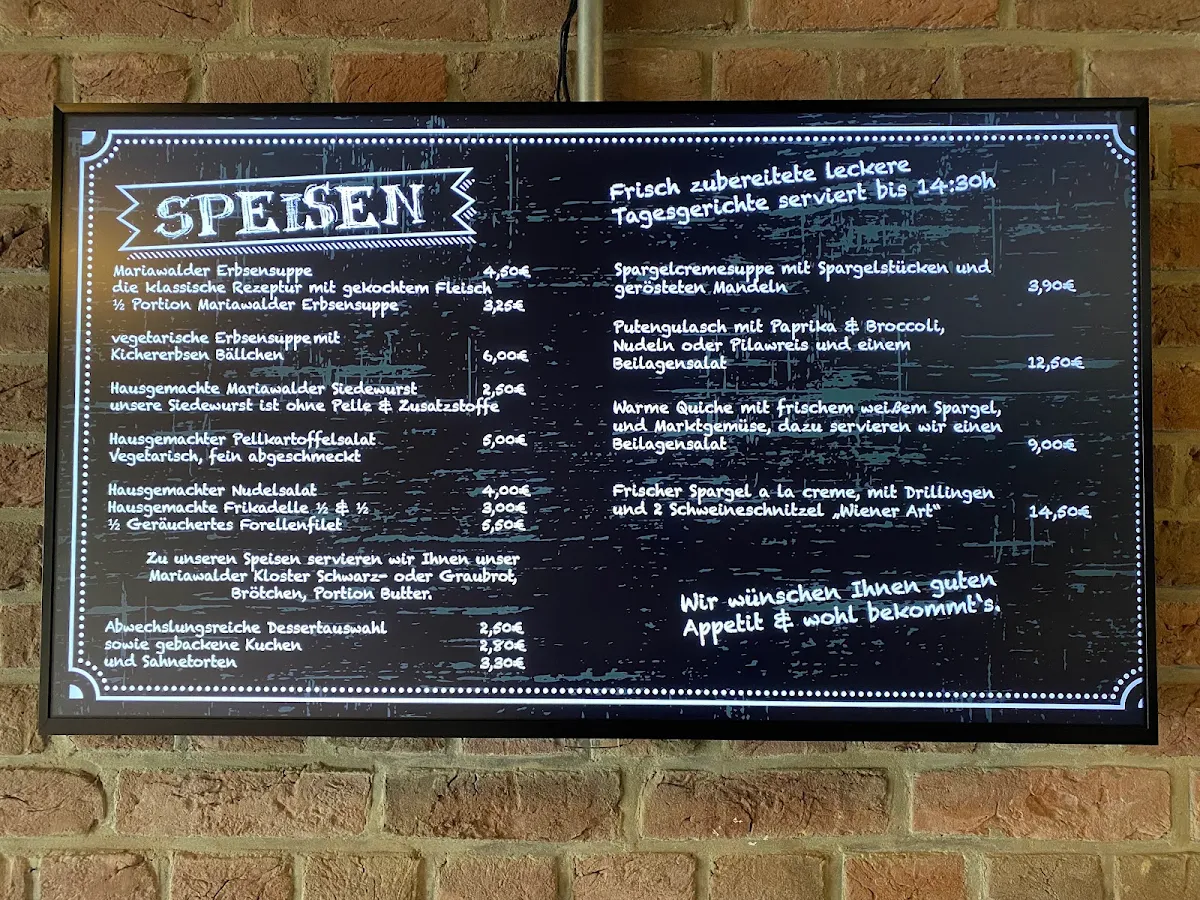 SPEISEN
Mariawalder Erbsensuppe 4,50€
die klassische Rezeptur mit gekochtem Fleisch
½ Portion Mariawalder Erbsensuppe 3,25€
vegetarische Erbsensuppe mit
Kichererbsen Bällchen 6,00€
Hausgemachte Mariawalder Siedewurst 2,50€
unsere Siedewurst ist ohne Pelle & Zusatzstoffe
Hausgemachter Pellkartoffelsalat 5,00€
Vegetarisch, fein abgeschmeckt
Hausgemachter Nudelsalat 4,00€
Hausgemachte Frikadelle ½ & ½ 3,00€
½ Geräuchertes Forellenfilet 5,50€
Zu unseren Speisen servieren wir Ihnen unser
Mariawalder Kloster Schwarz- oder Graubrot,
Brötchen, Portion Butter.
Abwechslungsreiche Dessertauswahl 2,50€
sowie gebackene Kuchen 2,80€
und Sahnetorten 3,30€
Frisch zubereitete leckere
Tagesgerichte serviert bis 14:30h
Spargelcremesuppe mit Spargelstücken und
gerösteten Mandeln 3,90€
Putengulasch mit Paprika & Broccoli,
Nudeln oder Pilawreis und einem
Beilagensalat 12,50€
Warme Quiche mit frischem weißem Spargel,
und Marktgemüse, dazu servieren wir einen
Beilagensalat 9,00€
Frischer Spargel a la creme, mit Drillingen
und 2 Schweineschnitzel „Wiener Art" 14,50€
Wir wünschen Ihnen guten
Appetit & wohl bekommt's.